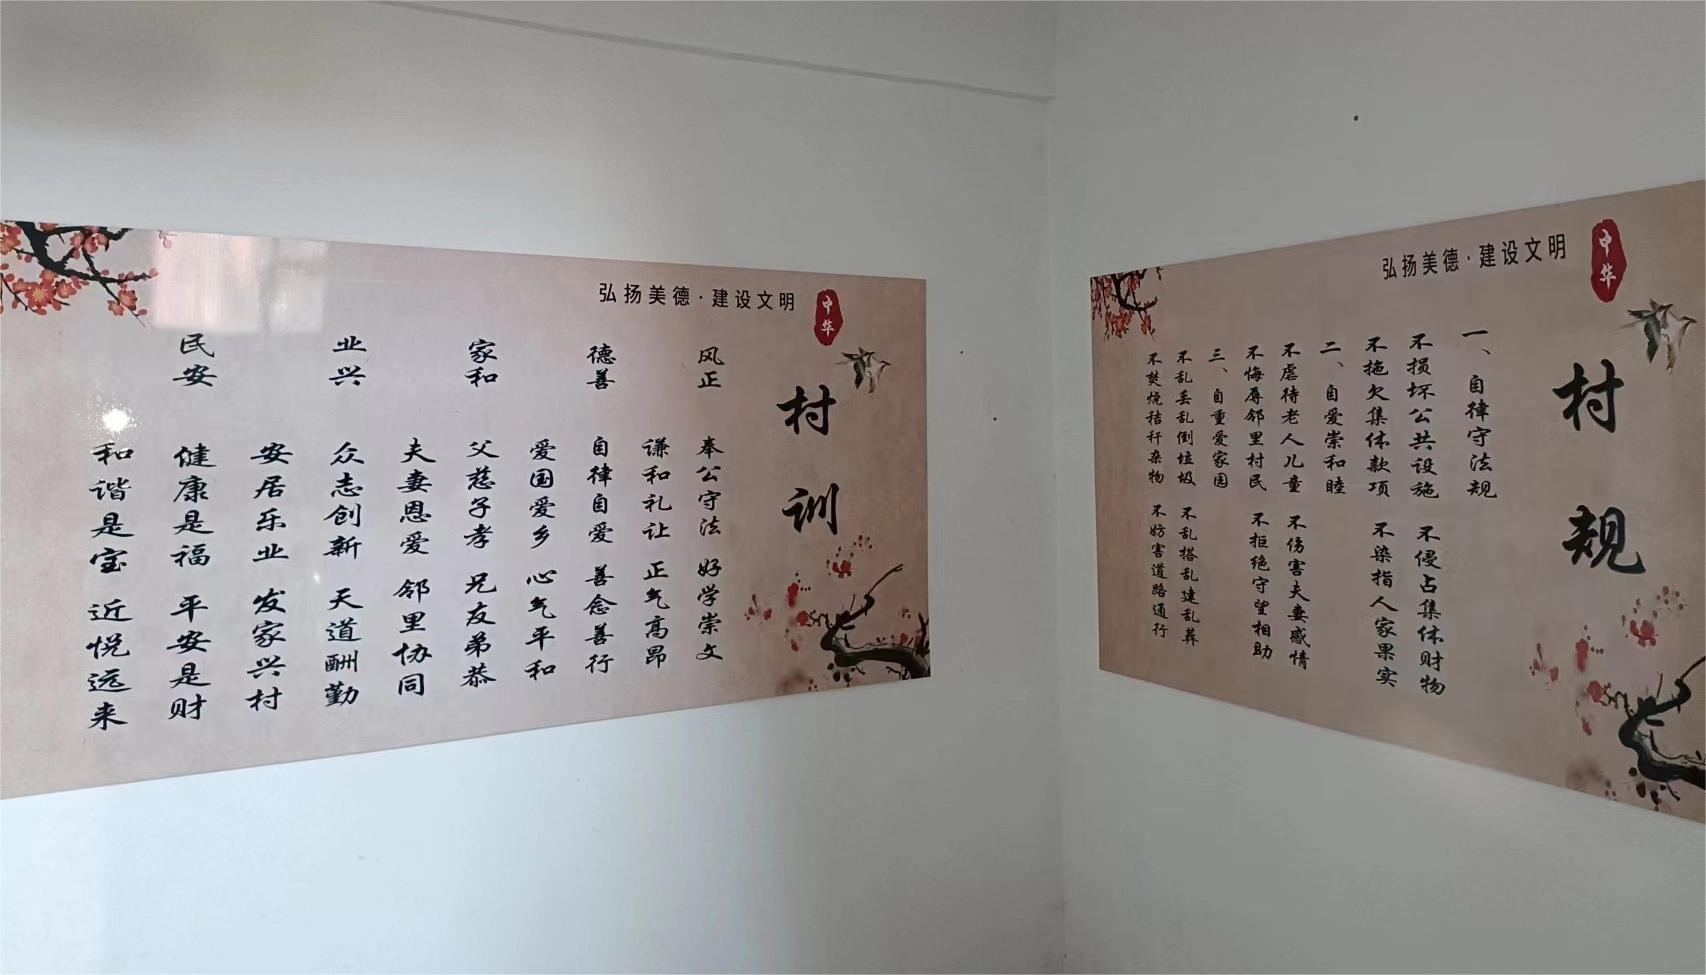 弘扬美德·建设文明
中华
村训
风正
奉公守法 好学崇文
谦和礼让 正气高昂
德善
自律自爱 善念善行
爱国爱乡 心气平和
家和
父慈子孝 兄友弟恭
夫妻恩爱 邻里协同
业兴
众志创新 天道酬勤
安居乐业 发家兴村
民安
健康是福 平安是财
和谐是宝 近悦远来
弘扬美德·建设文明
中华
村规
一、自律守法规
不损坏公共设施 不侵占集体财物
不拖欠集体款项 不染指人家果实
二、自爱崇和睦
不虐待老人儿童 不伤害夫妻感情
不侮辱邻里村民 不拒绝守望相助
三、自重爱家园
不乱丢乱倒垃圾 不乱搭乱建乱葬
不焚烧秸秆杂物 不妨害道路通行